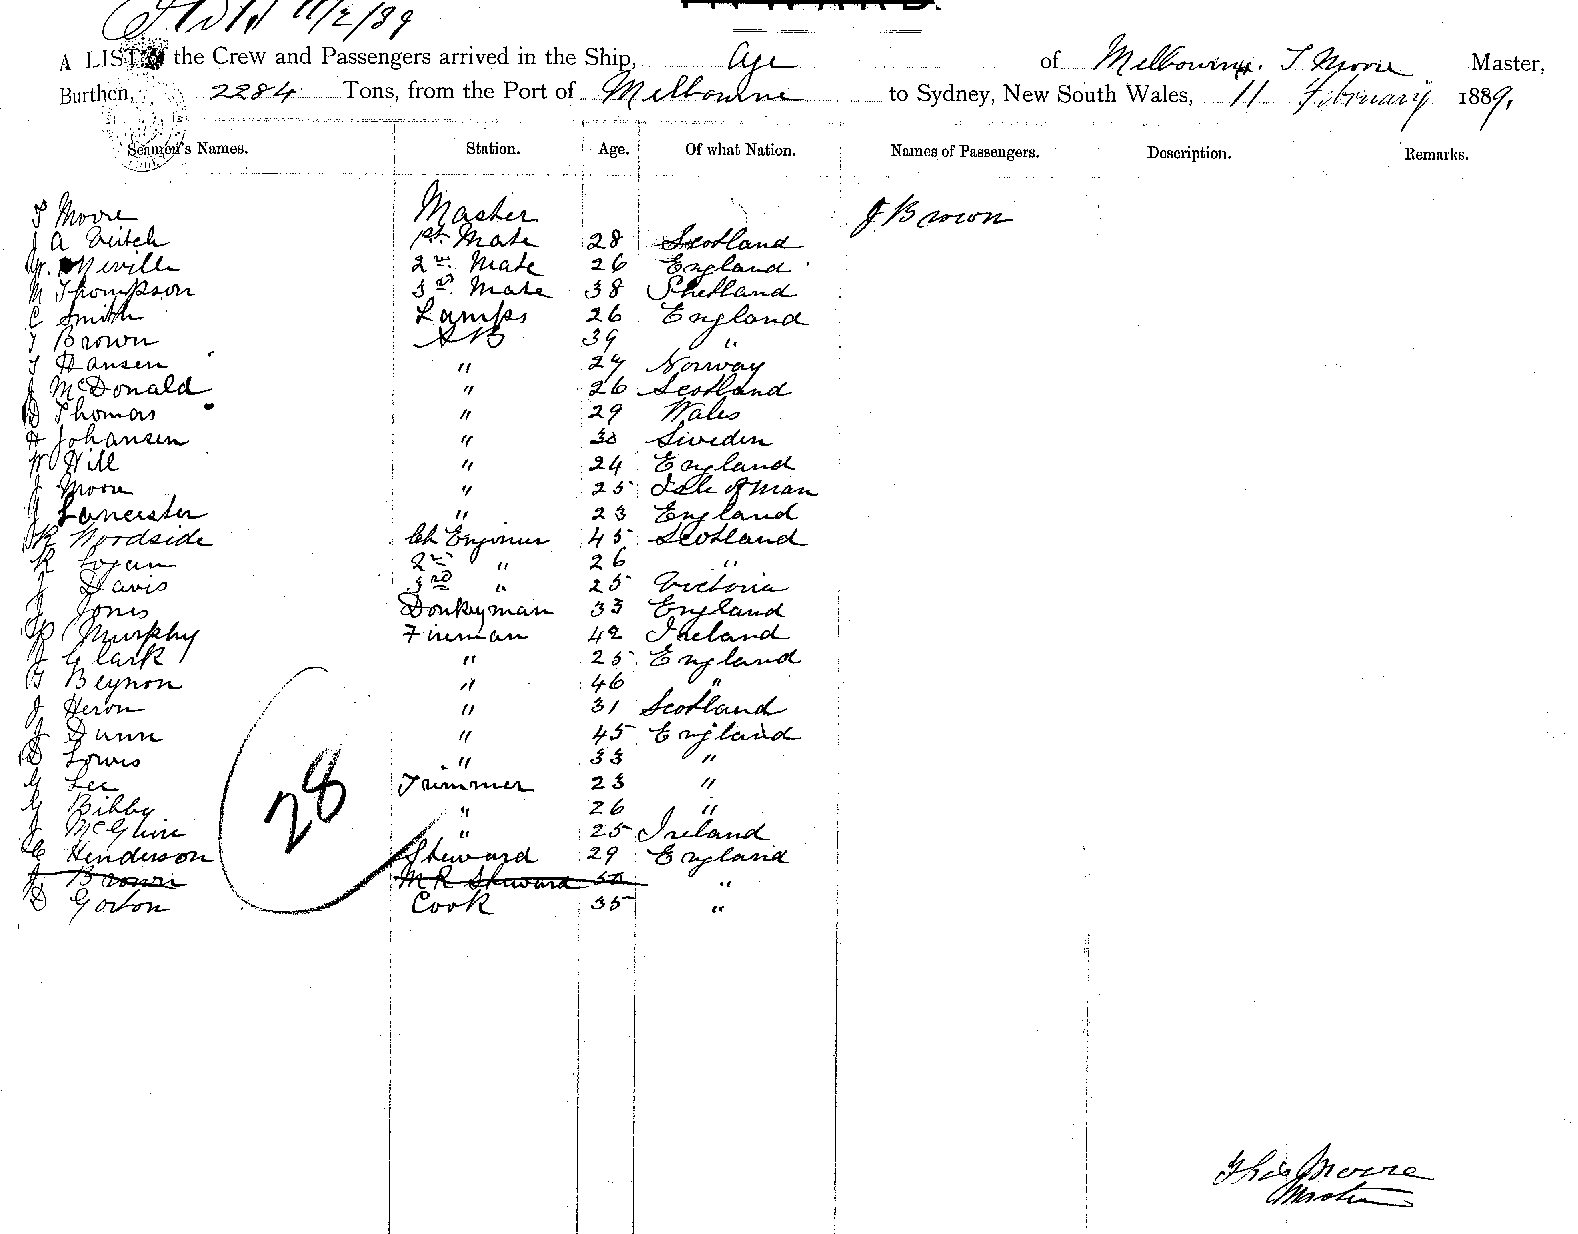 11/2/89
A LIST of the Crew and Passengers arrived in the Ship, Age of Melbourne. T Moore Master,
Burthen, 2284 Tons, from the Port of Melbourne to Sydney, New South Wales, 11 February 1889,
Seamen's Names. Station. Age. Of what Nation. Names of Passengers. Description. Remarks.
T Moore Master J Brown
J A Veitch 1st Mate 28 Scotland
W. Neville 2nd Mate 26 England
M Thompson 3rd Mate 38 Shetland
C Smith Lamps 26 England
T Brown AB 39 "
T Hansen " 27 Norway
J McDonald " 26 Scotland
D Thomas " 29 Wales
H Johansen " 30 Sweden
W Hill " 24 England
J Moore " 25 Isle of Man
J Lancester " 23 England
R Woodside Ch Enginer 45 Scotland
R Logan 2nd " 26 "
J Davis 3rd " 25 Victoria
J Jones Donkeyman 33 England
P Murphy Fireman 42 Ireland
J Clark " 25 England
G Beynon " 46 "
J Heron " 31 Scotland
J Dunn " 45 England
D Lewis " 33 "
G Lee Trimmer 23 "
G Bibby " 26 "
J McGlune " 25 Ireland
C Henderson Steward 29 England
J Brown M R Steward 50 "
D Gorton Cook 35 "
28
Thos Moore
Master